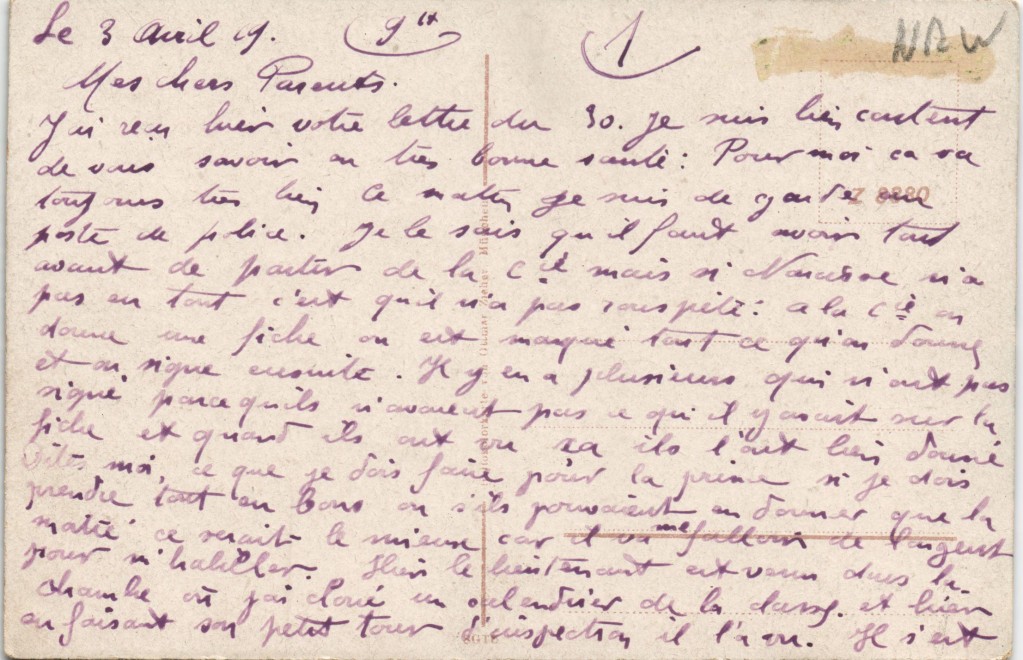 Le 3 Avril 19. 9 bt 1 NRW
Mes chers Parents.
J'ai reçu hier votre lettre du 30. je suis bien content
de vous savoir en très bonne santé: Pour moi ca va
toujours très bien Ce matin je suis de garde au
Z 8880
poste de police. Je le sais qu'il faut avoir tout
avant de partir de la Cie mais si Narcisse n'a
pas eu tout c'est qu'il n'a pas rouspété: a la Cie on
donne une fiche ou est marqué tout ce qu'on donne
et on signe ensuite. Il y en a plusieurs qui n'ont pas
signé parcequ'ils n'avaient pas ce qu'il y avait sur la
fiche et quand ils ont vu ca ils l'ont bien donné
Dites moi, ce que je dois faire pour la prime si je dois
prendre tout en bons ou s'ils pouvaient en donner que la
moitié ce serait le mieux car il va me falloir de l'argent
pour m'habiller. Hier le lieutenant est venu dans la
chambre où j'ai cloué un calendrier de la classe. et hier
en faisant son petit tour d'inspection il l'a vu. Il s'est